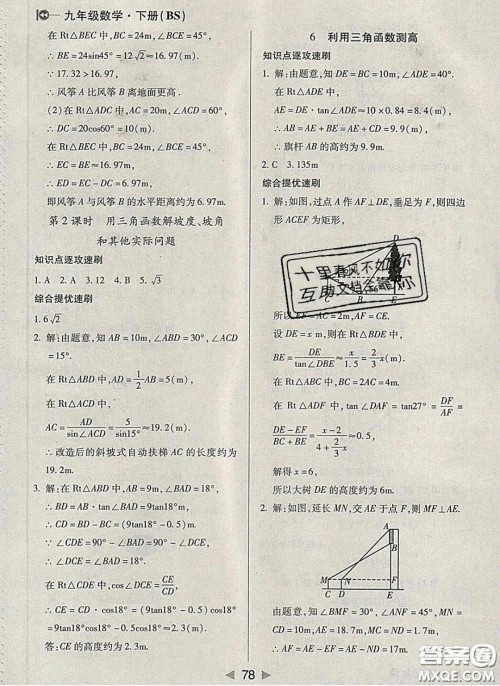 九年级数学·下册(BS)
在 Rt△BEC 中,BC=24m,∠BCE=45°,
∴BE=24sin45°=12√2(m).
∵17.32>16.97,
∴风筝 A 比风筝 B 离地面更高.
(2)在 Rt△ADC 中,AC=20m,∠ACD=60°,
∴DC=20cos60°=10(m).
在 Rt△BEC 中,BC=24m,∠BCE=45°,
∴EC=BE≈16.97m,
∴ED=EC-DC≈6.97m,
即风筝 A 与风筝 B 的水平距离约为 6.97m.
第2课时 用三角函数解坡度、坡角
和其他实际问题
知识点逐攻速刷
1.A 2.A 3.12 4.B 5.√3
综合提优速刷
1.6√2
2. 解:由题意,知 AB=10m,∠ABD=30°,∠ACD
=15°.
在 Rt△ABD 中,AD=1/2 AB=5(m),
在 Rt△ACD 中,
AC=AD/sin∠ACD≈5/sin15°≈19.2(m).
∴改造后的斜坡式自动扶梯 AC 的长度约为
19.2m.
3. 解:在 Rt△ABD 中,AB=9m,∠BAD=18°,
∴BD=AB·tan18°=9tan18°(m),
∴CD=BD-BC=(9tan18°-0.5)(m).
∵∠CDE=90°-∠BDA=∠BAD,
∴∠CDE=∠BAD=18°.
在 Rt△CDE 中,cos∠DCE=CE/CD,
∴CE=CD·cos18°=(9tan18°-0.5)·cos18°
≈2.3(m).
答:CE 的高度约为 2.3m.
6 利用三角函数测高
知识点逐攻速刷
1. 解:由题意,知 DE=BC=10m,∠ADE=40°,
在 Rt△ADE 中,
AE=DE·tan∠ADE≈10×0.84=8.4(m),
∴AB=AE+EB=AE+CD=9.9(m).
∴旗杆 AB 的高约为 9.9m.
2.C 3.135m
综合提优速刷
1. 解:如图,过点 A 作 AF⊥DE,垂足为 F,则四边
形 ACEF 为矩形,
十里春风不如你
互助文档会靠你
所以 AF=CE,AC=EF=2m.
设 DE=x m,在 Rt△BDE 中,∠DBE=60°,
BE=DE/tan∠DBE≈x/1.5=2/3 x(m).
在 Rt△ADF 中,tan∠DAF=tan27°=DF/AF
=(DE-EF)/(BC+BE)=(x-2)/(4+2/3 x)≈1/2,
解得 x=6,
所以大树 DE 的高度约为 6m.
2. 解:如图,延长 MN,交 AE 于点 F,则 MF⊥AE.
A
B
M N F
C D E
由题意,知∠BMF=30°,∠ANF=45°,MN=
CD=10m,MC=ND=EF=18m,AE=52m,
78